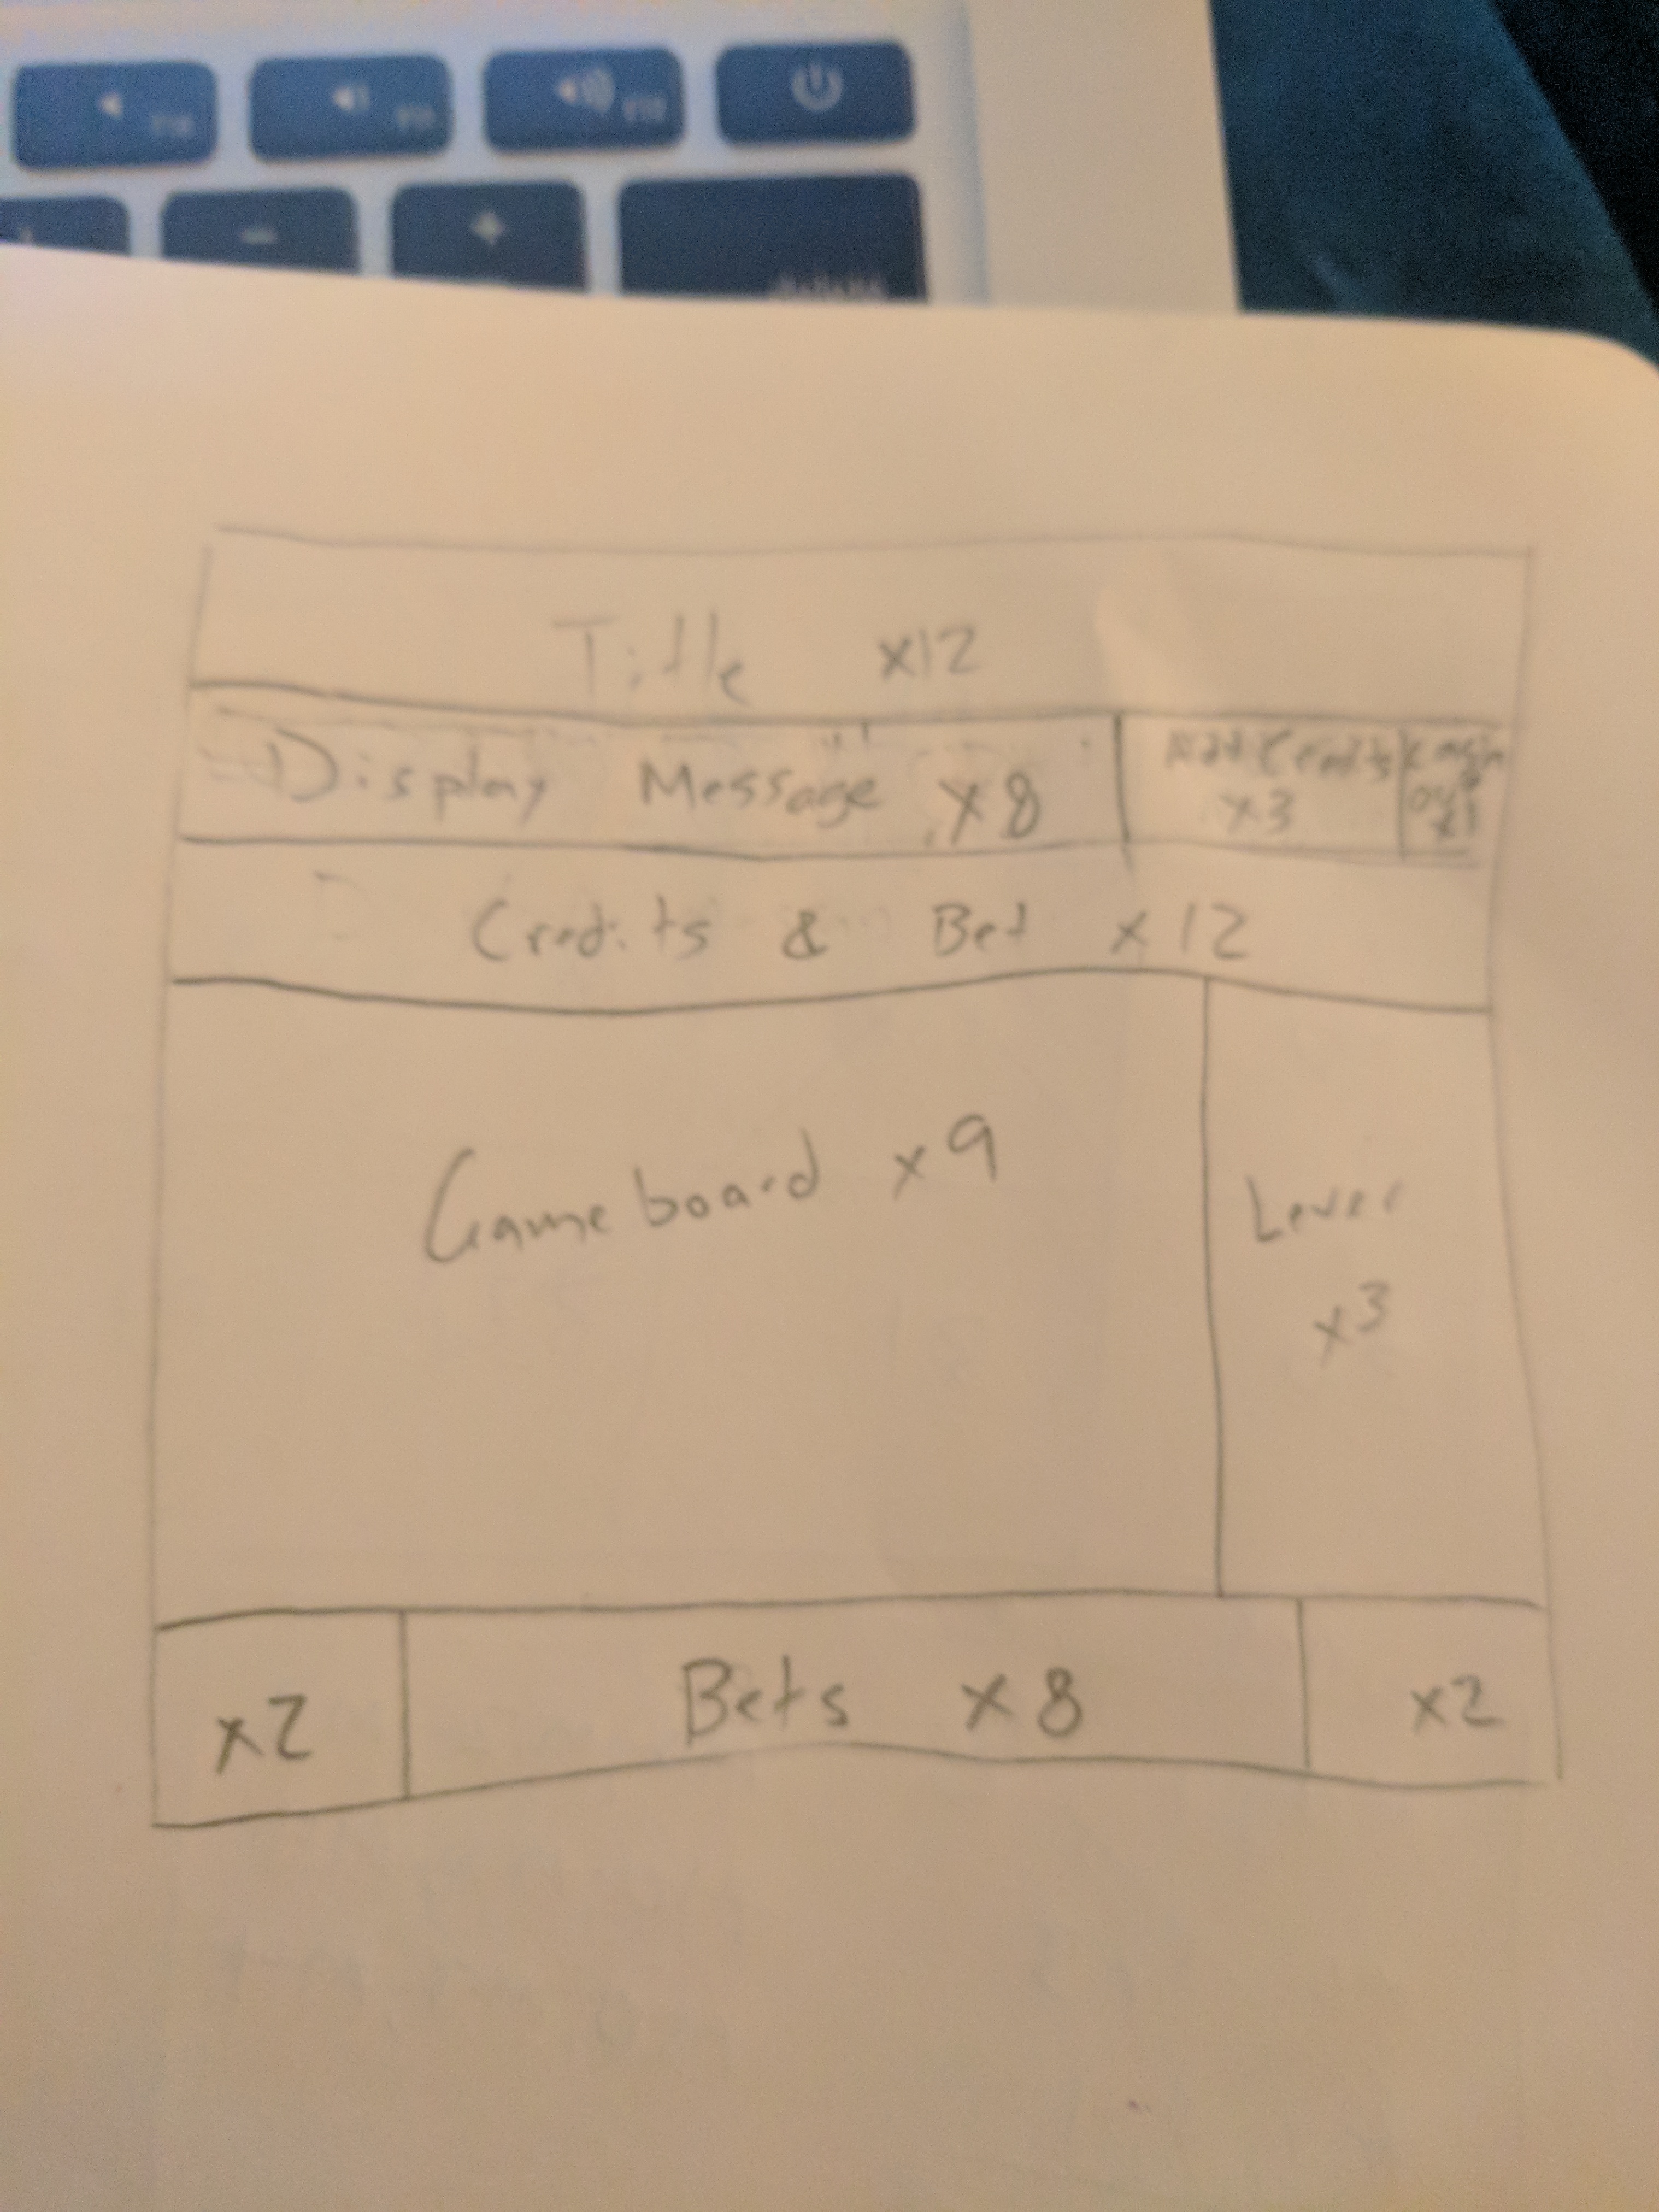 delete
Title x12
Display Message x8
Add Credits
x3
Cash
Out
x1
Credits & Bet x12
Gameboard x9
Lever
x3
x2
Bets x8
x2